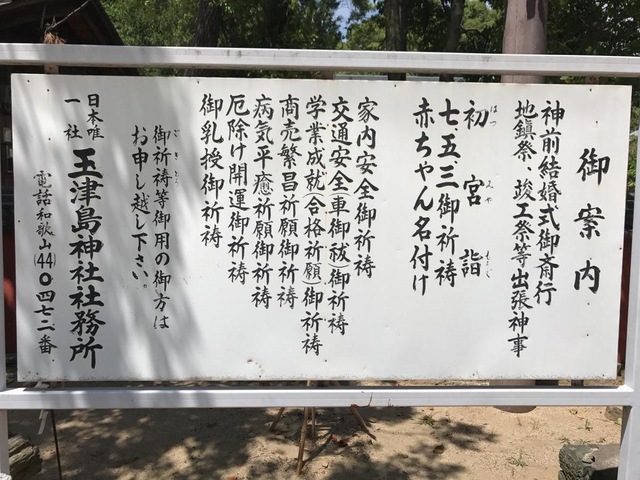 御案内
神前結婚式御斎行
地鎮祭、竣工祭等出張神事
初宮詣
はつみやもうで
七、五、三御祈祷
赤ちゃん名付け
家内安全御祈祷
交通安全車御祓御祈祷
学業成就(合格祈願)御祈祷
商売繁昌祈願御祈祷
病気平癒祈願御祈祷
厄除け開運御祈祷
御乳授御祈祷
御祈祷等御用の御方は
お申し越し下さい。
日本唯一社
玉津島神社社務所
電話和歌山(44)〇四七二番